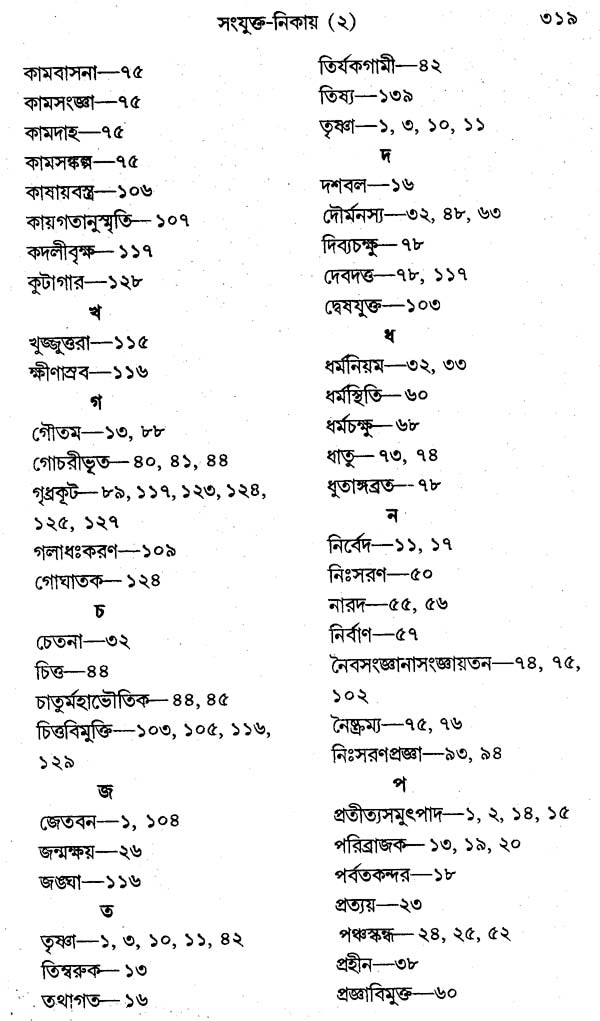 সংযুক্ত-নিকায় (২)
৩১৯
কামবাসনা—৭৫
কামসংজ্ঞা—৭৫
কামদাহ—৭৫
কামসঙ্কল্প—৭৫
কাষায়বস্ত্র—১০৬
কায়গতানুস্মৃতি—১০৭
কদলীবৃক্ষ—১১৭
কূটাগার—১২৮
খ
খুজ্জুত্তরা—১১৫
ক্ষীণাস্রব—১১৬
গ
গৌতম—১৩, ৮৮
গোচরীভূত—৪০, ৪১, ৪৪
গৃধ্রকূট—৮৯, ১১৭, ১২৩, ১২৪,
১২৫, ১২৭
গলাধঃকরণ—১০৯
গোঘাতক—১২৪
চ
চেতনা—৩২
চিত্ত—৪৪
চাতুর্মহাভৌতিক—৪৪, ৪৫
চিত্তবিমুক্তি—১০৩, ১০৫, ১১৬,
১২৯
জ
জেতবন—১, ১০৪
জন্মক্ষয়—২৬
জঙ্ঘা—১১৬
ত
তৃষ্ণা—১, ৩, ১০, ১১, ৪২
তিম্বরুক—১৩
তথাগত—১৬
তির্যকগামী—৪২
তিষ্য—১৩৯
তৃষ্ণা—১, ৩, ১০, ১১
দ
দশবল—১৬
দৌর্মনস্য—৩২, ৪৮, ৬৩
দিব্যচক্ষু—৭৮
দেবদত্ত—৭৮, ১১৭
দ্বেষযুক্ত—১০৩
ধ
ধর্মনিয়ম—৩২, ৩৩
ধর্মস্থিতি—৬০
ধর্মচক্ষু—৬৮
ধাতু—৭৩, ৭৪
ধুতাঙ্গব্রত—৭৮
ন
নির্বেদ—১১, ১৭
নিঃসরণ—৫০
নারদ—৫৫, ৫৬
নির্বাণ—৫৭
নৈবসংজ্ঞানাসংজ্ঞায়তন—৭৪, ৭৫,
১০২
নৈষ্ক্রম্য—৭৫, ৭৬
নিঃসরণপ্রজ্ঞা—৯৩, ৯৪
প
প্রতীত্যসমুৎপাদ—১, ২, ১৪, ১৫
পরিব্রাজক—১৩, ১৯, ২০
পর্বতকন্দর—১৮
প্রত্যয়—২৩
পঞ্চস্কন্ধ—২৪, ২৫, ৫২
প্রহীন—৩৮
প্রজ্ঞাবিমুক্ত—৬০